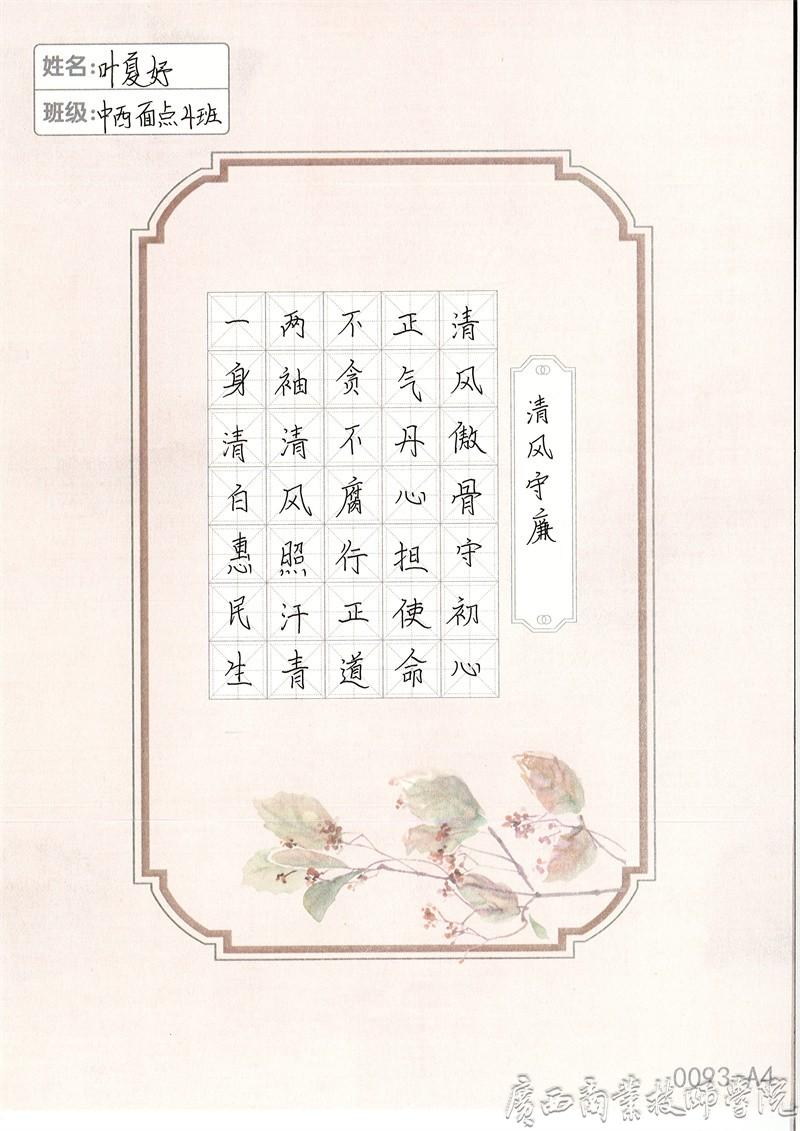 姓名:叶夏妤
班级:中西面点4班
清风守廉
清风傲骨守初心
正气丹心担使命
不贪不腐行正道
两袖清风照汗青
一身清白惠民生
0093-A4
廣西商業技师学院